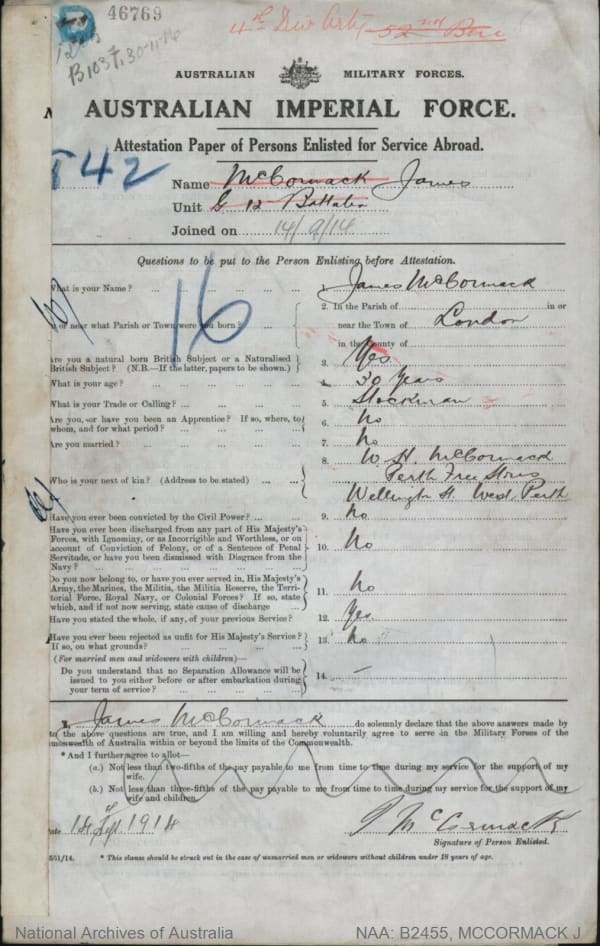 46769
4th Div Arty 52nd Bn
B103 7, 30-11-16
AUSTRALIAN MILITARY FORCES.
AUSTRALIAN IMPERIAL FORCE.
Attestation Paper of Persons Enlisted for Service Abroad.
T42
Name McCormack James
Unit G 12 Battalion
Joined on 14/9/14
Questions to be put to the Person Enlisting before Attestation.
What is your Name? 1. James McCormack
16
In or near what Parish or Town were you born? 2. In the Parish of in or
near the Town of London
in the County of
Are you a natural born British Subject or a Naturalised
British Subject? (N.B.—If the latter, papers to be shown.) 3. Yes
What is your age? 4. 30 Years
What is your Trade or Calling? 5. Stockman
Are you, or have you been an Apprentice? If so, where, to
whom, and for what period? 6. No
Are you married? 7. No
Who is your next of kin? (Address to be stated) 8. W. H. McCormack
Perth Free Stores
Wellington St West Perth
Have you ever been convicted by the Civil Power? 9. No
Have you ever been discharged from any part of His Majesty's
Forces, with Ignominy, or as Incorrigible and Worthless, or on
account of Conviction of Felony, or of a Sentence of Penal
Servitude, or have you been dismissed with Disgrace from the
Navy? 10. No
Do you now belong to, or have you ever served in, His Majesty's
Army, the Marines, the Militia, the Militia Reserve, the Terri-
torial Force, Royal Navy, or Colonial Forces? If so, state
which, and if not now serving, state cause of discharge 11. No
Have you stated the whole, if any, of your previous Service? 12. Yes
Have you ever been rejected as unfit for His Majesty's Service?
If so, on what grounds? 13. No
(For married men and widowers with children)—
Do you understand that no Separation Allowance will be
issued to you either before or after embarkation during
your term of service? 14. —
I, James McCormack do solemnly declare that the above answers made by
to the above questions are true, and I am willing and hereby voluntarily agree to serve in the Military Forces of the
monwealth of Australia within or beyond the limits of the Commonwealth.
* And I further agree to allot—
(a.) Not less than two-fifths of the pay payable to me from time to time during my service for the support of my
wife.
(b.) Not less than three-fifths of the pay payable to me from time to time during my service for the support of my
wife and children.
ate 14th Sep. 1914 J McCormack
Signature of Person Enlisted.
551/14. * This clause should be struck out in the case of unmarried men or widowers without children under 18 years of age.
National Archives of Australia NAA: B2455, MCCORMACK J